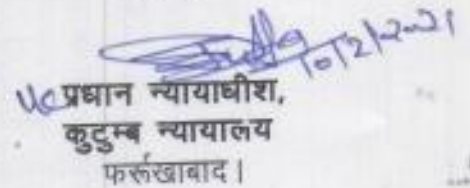 10/2/2021
प्रधान न्यायाधीश,
कुटुम्ब न्यायालय
फर्रूखाबाद।